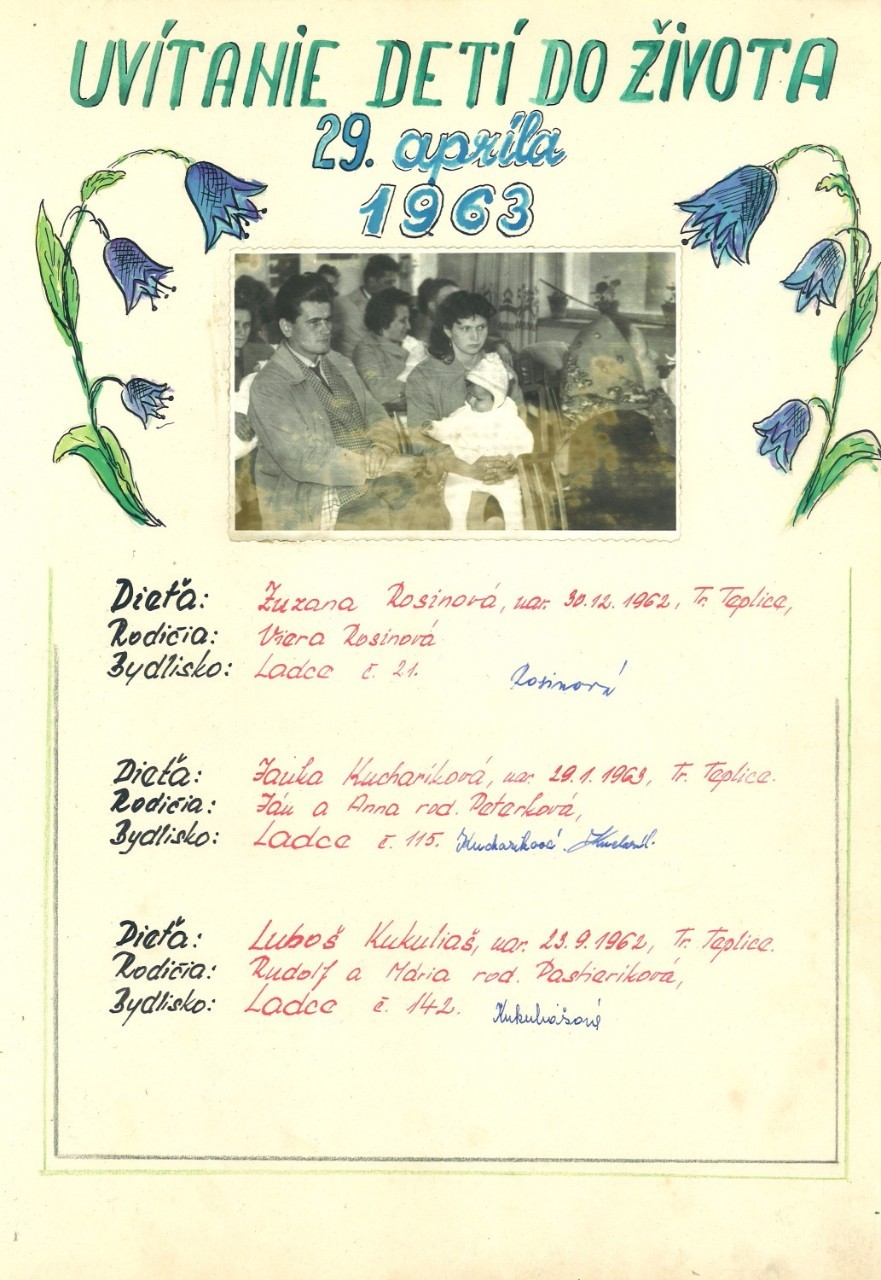 UVÍTANIE DETÍ DO ŽIVOTA
29. apríla
1963
Dieťa: Zuzana Rosinová, nar. 30.12. 1962, Tr. Teplice,
Rodičia: Viera Rosinová
Bydlisko: Ladce č. 21. Rosinová
Dieťa: Janka Kucharíková, nar. 29.1. 1963, Tr. Teplice.
Rodičia: Ján a Anna rod. Peterková,
Bydlisko: Ladce č. 115. Kucharíková
Dieťa: Luboš Kukuliaš, nar. 23.9.1962, Tr. Teplice.
Rodičia: Rudolf a Mária rod. Pastieriková,
Bydlisko: Ladce č. 142. Kukuliašová